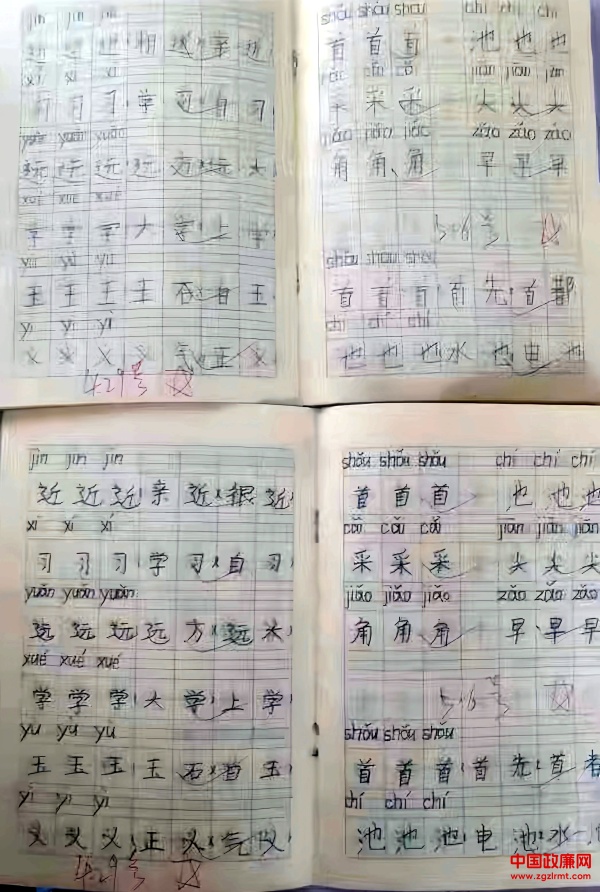 jìn jìn jìn
近 近 近 相 近 亲 近
xí xí xí
习 习 习 学 习 自 习
yuǎn yuǎn yuǎn
远 远 远 远 方 远 大
xué xué xué
学 学 学 大 学 上 学
yù yù yù
玉 玉 玉 玉 石 玉
yì yì yì
义 义 义 义 气 正 义
4.29号 阅
shǒu shǒu shǒu chí chí chí
首 首 首 池 池 池
cǎi cǎi cǎi jiān jiān jiān
采 采 采 尖 尖 尖
jiǎo jiǎo jiǎo zǎo zǎo zǎo
角 角 角 早 早 早
5.6号 阅
shǒu shǒu shǒu
首 首 首 首 先 首 都
chí chí chí
池 池 池 水 池 电 池
jìn jìn jìn
近 近 近 亲 近 很 近
xí xí xí
习 习 习 学 习 自 习
yuǎn yuǎn yuǎn
远 远 远 远 方 远
xué xué xué
学 学 学 大 学 上 学
yù yù yù
玉 玉 玉 玉 石 玉
yì yì yì
义 义 义 正 义 气 义
4.29号 阅
shǒu shǒu shǒu chí chí chí
首 首 首 池 池 池
cǎi cǎi cǎi jiān jiān jiān
采 采 采 尖 尖 尖
jiǎo jiǎo jiǎo zǎo zǎo zǎo
角 角 角 早 早 早
5.6号 阅
shǒu shǒu shǒu
首 首 首 首 先 首
chí chí chí
池 池 池 电 池 水
中国政廉网
www.zgzlrmt.com